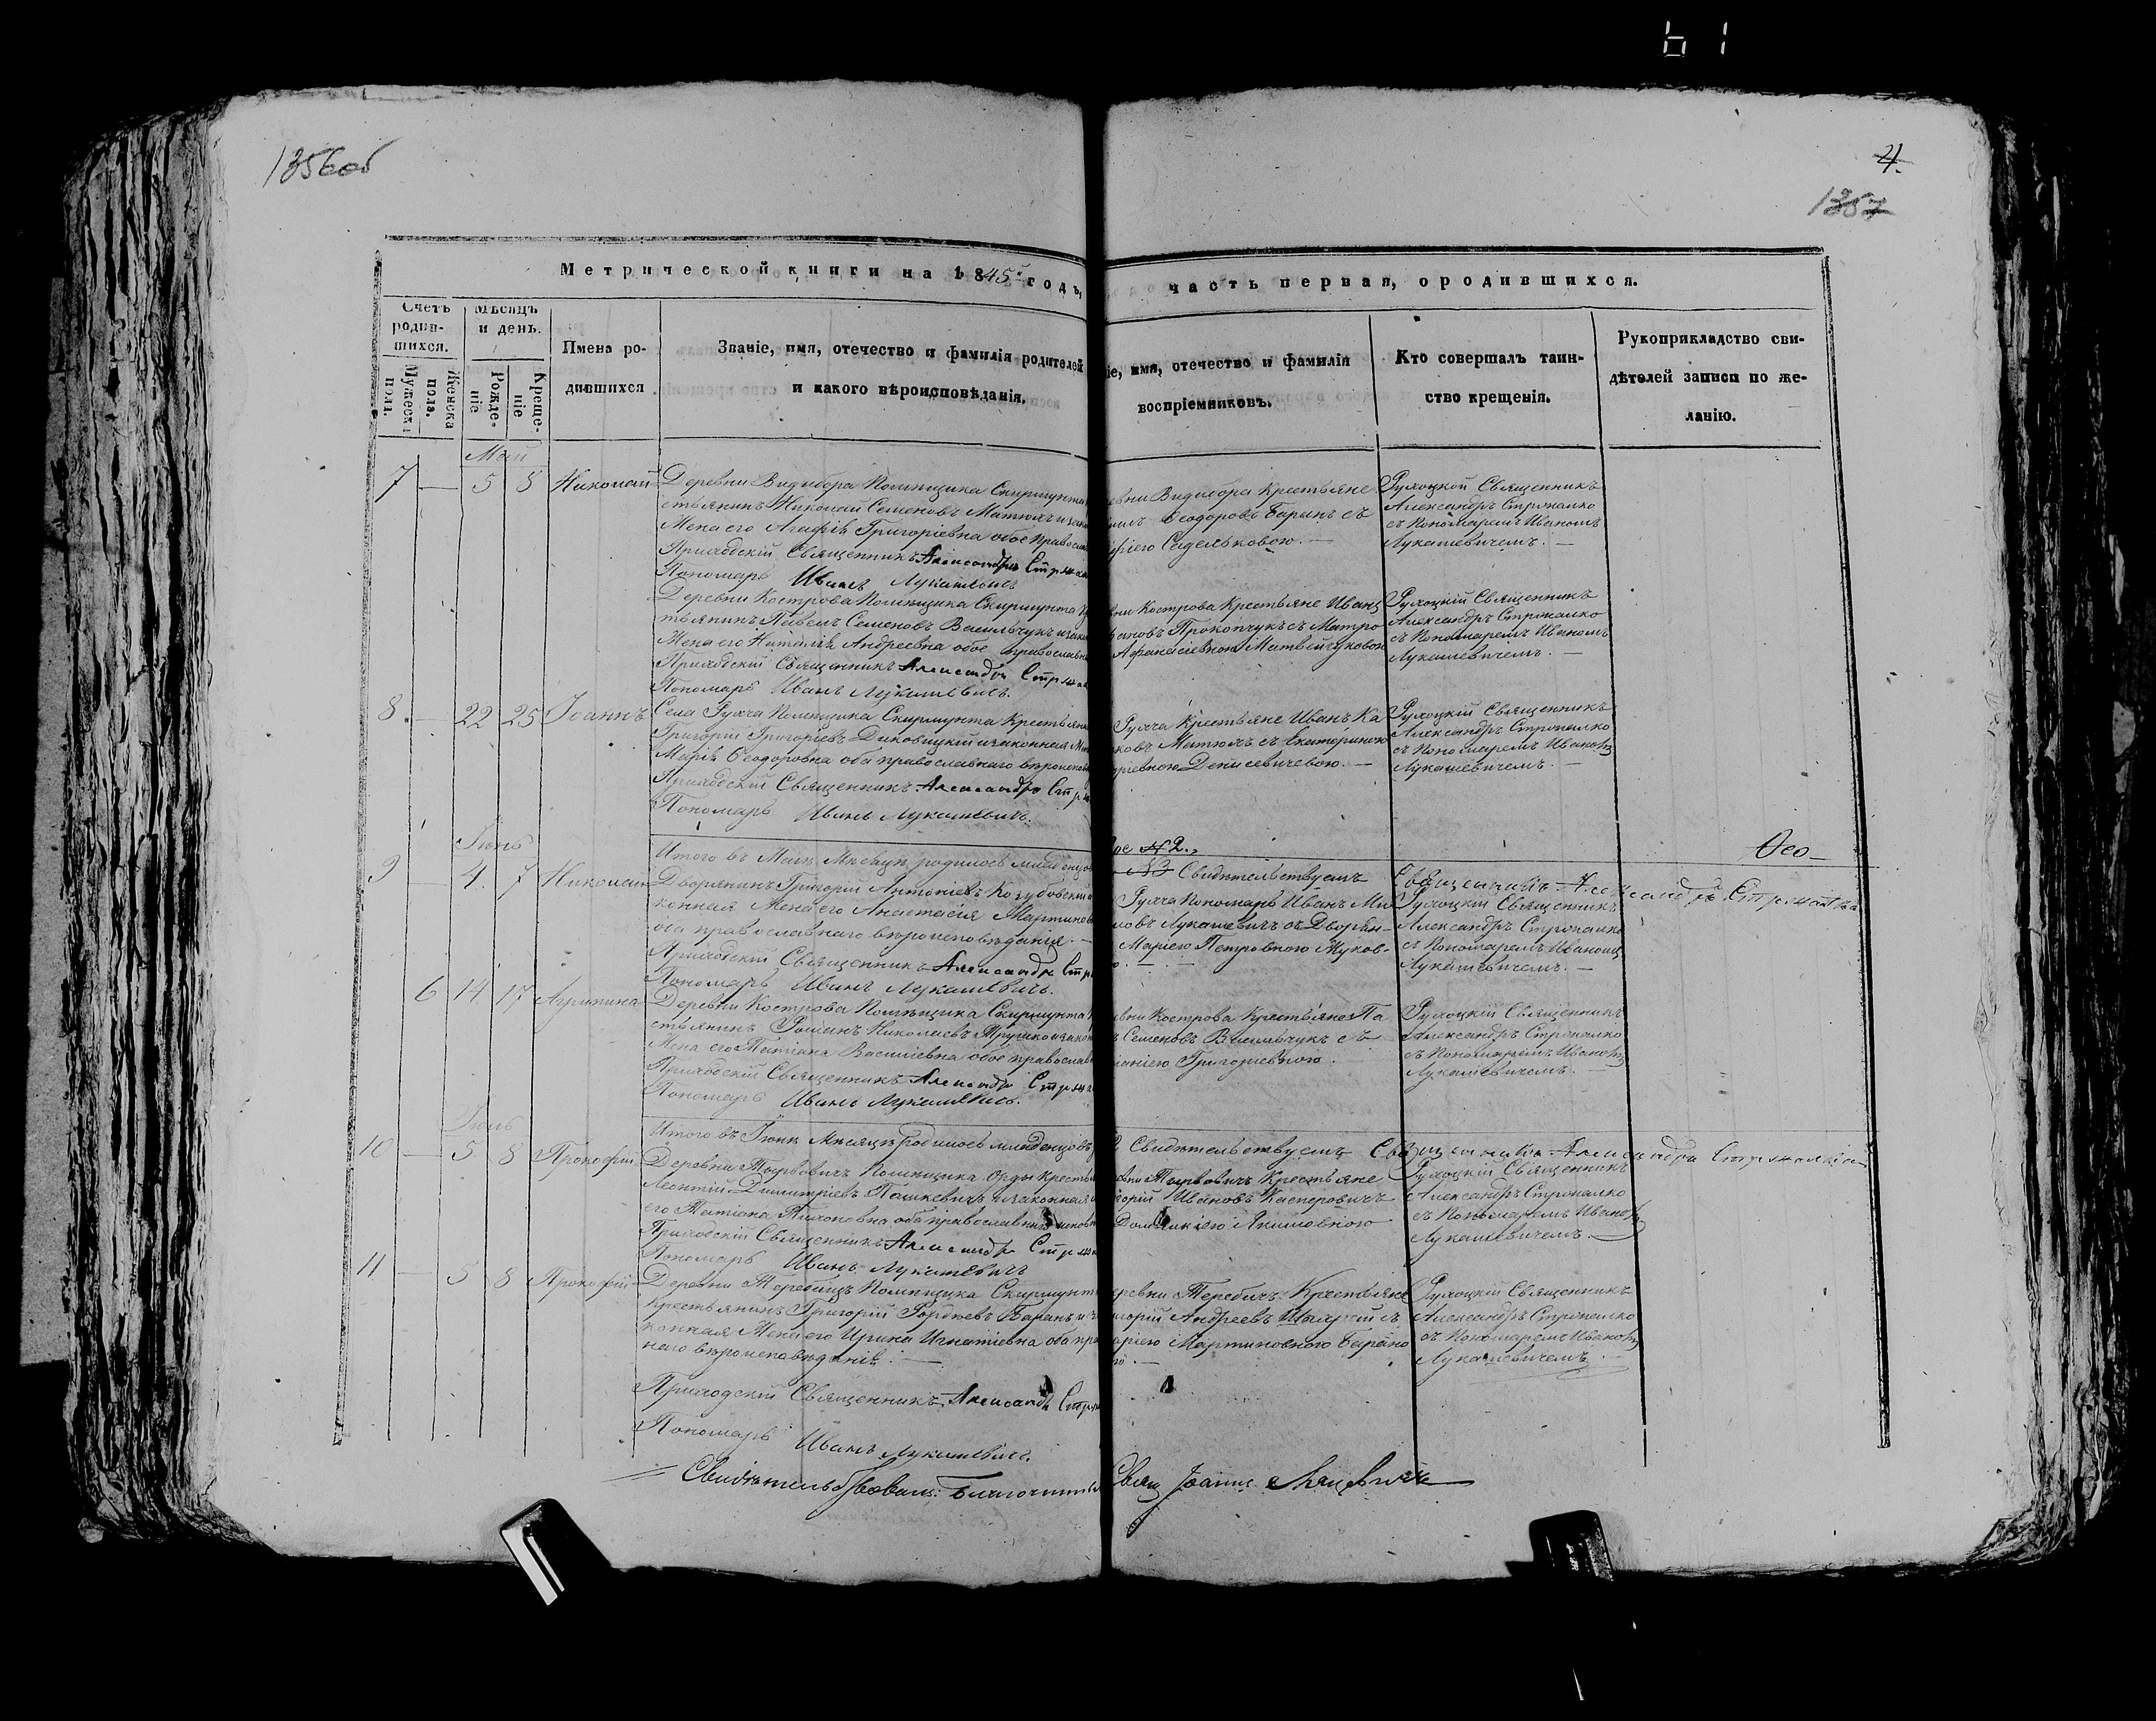 61
1356об
4.
1357
Метрической книги на 1845й годъ,
часть первая, о родившихся.
Счетъ родив-
шихся.
Мужеска пола.
Женска пола.
Мѣсяцъ и день.
Рожде-
ніе
Креще-
ніе
Имена ро-
дившихся
Званіе, имя, отечество и фамилія родителей
и какого вѣроисповѣданія.
іе, имя, отечество и фамилія
воспріемниковъ.
Кто совершалъ таин-
ство крещенія.
Рукоприкладство сви-
дѣтелей записи по же-
ланію.
Май
7 — 5 8 Николай
Деревни Видибора Помѣщика Скирмунта
стьянинъ Николай Семеновъ Матюхъ и закон
Жена его Агафія Григоріевна обое православ
Приходскій Священникъ Александръ Стрж
Пономарь Иванъ Лукашевичъ
евни Видибора Крестьяне
Ѳеодоровъ Баранъ съ
фіею Седельковою. —
Рухоцкой Священникъ
Александръ Стржалко
съ Пономаремъ Иваномъ
Лукашевичемъ. —
Деревни Кострова Помѣщика Скирмунта Кре
тьянинъ Павелъ Семеновъ Васильчукъ и закон
Жена его Наталія Андреевна обое православн
Приходскій Священникъ Александръ Стржа
Пономарь Иванъ Лукашевичъ.
вни Кострова Крестьяне Иванъ
вановъ Прокопчукъ съ Матро
Афанасіевною Матвейчуковою
Рухоцкій Священникъ
Александръ Стржалко
съ Пономаремъ Иваномъ
Лукашевичемъ. —
8. — 22 25 Іоаннъ
Села Рухча Помѣщика Скирмунта Крестьянин
Григорій Григоріевъ Диковицкій и законная Же
Марія Ѳеодоровна оба православнаго вѣроиспов
Приходскій Священникъ Александръ Стр
Пономарь Иванъ Лукашевичъ.
Рухча Крестьяне Иванъ Ка
ковъ Матюхъ съ Екатериною
оріевною Денисевичевою. —
Рухоцкій Священникъ
Александръ Стржалко
съ Пономаремъ Иваномъ
Лукашевичемъ. —
Итого въ Маѣ Мѣсяцѣ родилось младенцов
ое № 2.,
Свидѣтельствуемъ
Священникъ Александръ Стржалка
Іюнь
9 — 4. 7 Николай
Дворянинъ Григорій Антоніевъ Козубовскій
конная Жена его Анастасія Мартинов
оба православнаго вѣроисповѣданія. —
Приходскій Священникъ Александръ Стр
Пономарь Иванъ Лукашевичъ.
Рухча Пономарь Иванъ Ми
ловъ Лукашевичъ съ Дворян-
Маріею Петровною Жуков-
Рухоцкій Священникъ
Александръ Стржалко
съ Пономаремъ Иваномъ
Лукашевичемъ. —
6 14 17 Агрипина
Деревни Кострова Помѣщика Скирмунта К
стьянинъ Романъ Николаевъ Трушко и закон
Жена его Татіана Василіевна обое православ
Приходскій Священникъ Александръ Стржа
Пономарь Иванъ Лукашевичъ.
евни Кострова Крестьяне Па
ъ Семеновъ Васильчукъ съ
Григоріевною.
Рухоцкій Священникъ
Александръ Стржалко
съ Пономаремъ Иваномъ
Лукашевичемъ. —
Итого въ Іюнѣ Мѣсяцѣ родилось младенцовъ
2 Свидѣтельствуемъ Священникъ Александръ Стржалка
Іюль
10 — 5 8 Прокофій
Деревни Помѣщика Орды Крестья
Леонтій Димитріевъ Пашкевичъ и законная
его Татіана Тихоновна оба православнаго исповѣ
Приходскій Священникъ Александръ Стрж
Пономарь Иванъ Лукашевичъ
Крестьяне
горій Ивановъ Касперовичъ
Домникіею Якимовною
Рухоцкій Священникъ
Александръ Стржалко
съ Пономаремъ Иваномъ
Лукашевичемъ. —
11 — 5 8 Прокофій
Деревни Теребичъ Помѣщика Скирмунт
Крестьянинъ Григорій Баранъ и з
конная Жена его Ирина Игнатіевна оба пра
наго вѣроисповѣданія. —
Приходскій Священникъ Александръ Стрж
Пономарь Иванъ Лукашевичъ.
еревни Теребичъ Крестьяне
игорій Андреевъ съ
аріею Мартиновною Барано
ю. —
Рухоцкій Священникъ
Александръ Стржалко
съ Пономаремъ Иваномъ
Лукашевичемъ. —
Свидѣтельствовалъ: Благочинный Свящ Іоаннъ